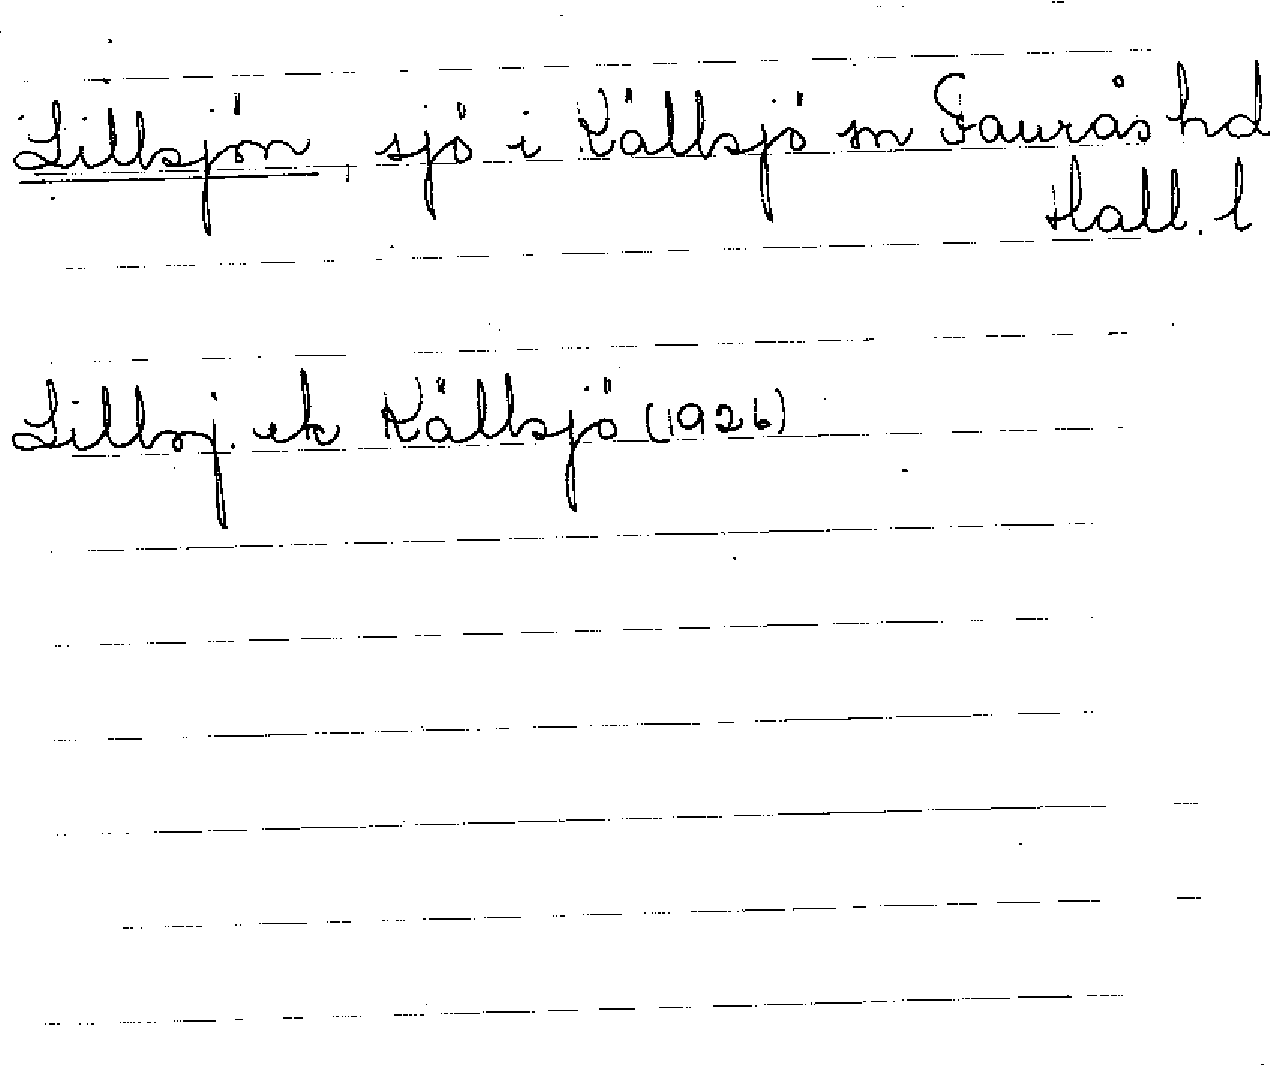 Lillsjön, sjö i Källsjö sn Faurås hd
Hall. l
Lillsj. ek Källsjö (1926)